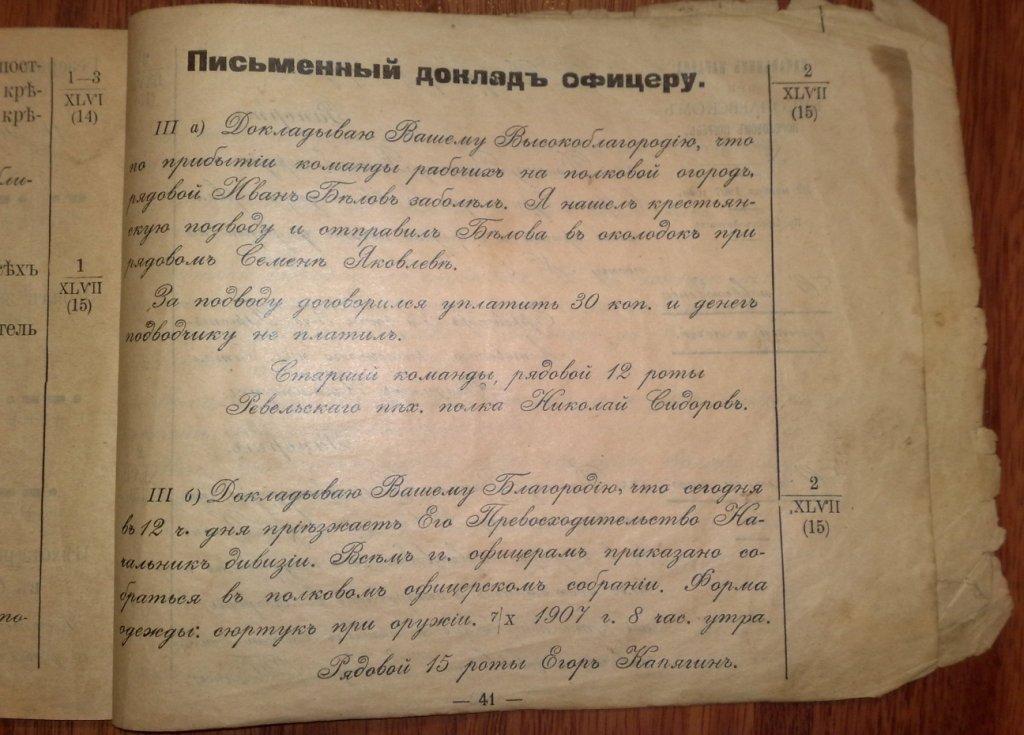 пост-
крѣ-
крѣ-
ли-
сѣхъ
тель
по-
1—3
XLVI
(14)
1
XLVII
(15)
Письменный докладъ офицеру.
III а) Докладываю Вашему Высокоблагородію, что
по прибытіи команды рабочихъ на полковой огородъ,
рядовой Иванъ Бѣловъ заболѣлъ. Я нашелъ крестьян-
скую подводу и отправилъ Бѣлова въ околодокъ при
рядовомъ Семенѣ Яковлевѣ.
За подводу договорился уплатить 30 коп. и денегъ
подводчику не платилъ.
Старшій команды, рядовой 12 роты
Ревельскаго пѣх. полка Николай Сидоровъ.
2
XLVII
(15)
III б) Докладываю Вашему Благородію, что сегодня
въ 12 ч. дня пріѣзжаетъ Его Превосходительство На-
чальникъ дивизіи. Всѣмъ гг. офицерамъ приказано со-
браться въ полковомъ офицерскомъ собраніи. Форма
одежды: сюртукъ при оружіи. 7/X 1907 г. 8 час. утра.
Рядовой 15 роты Егоръ Капягинъ.
2
XLVII
(15)
— 41 —